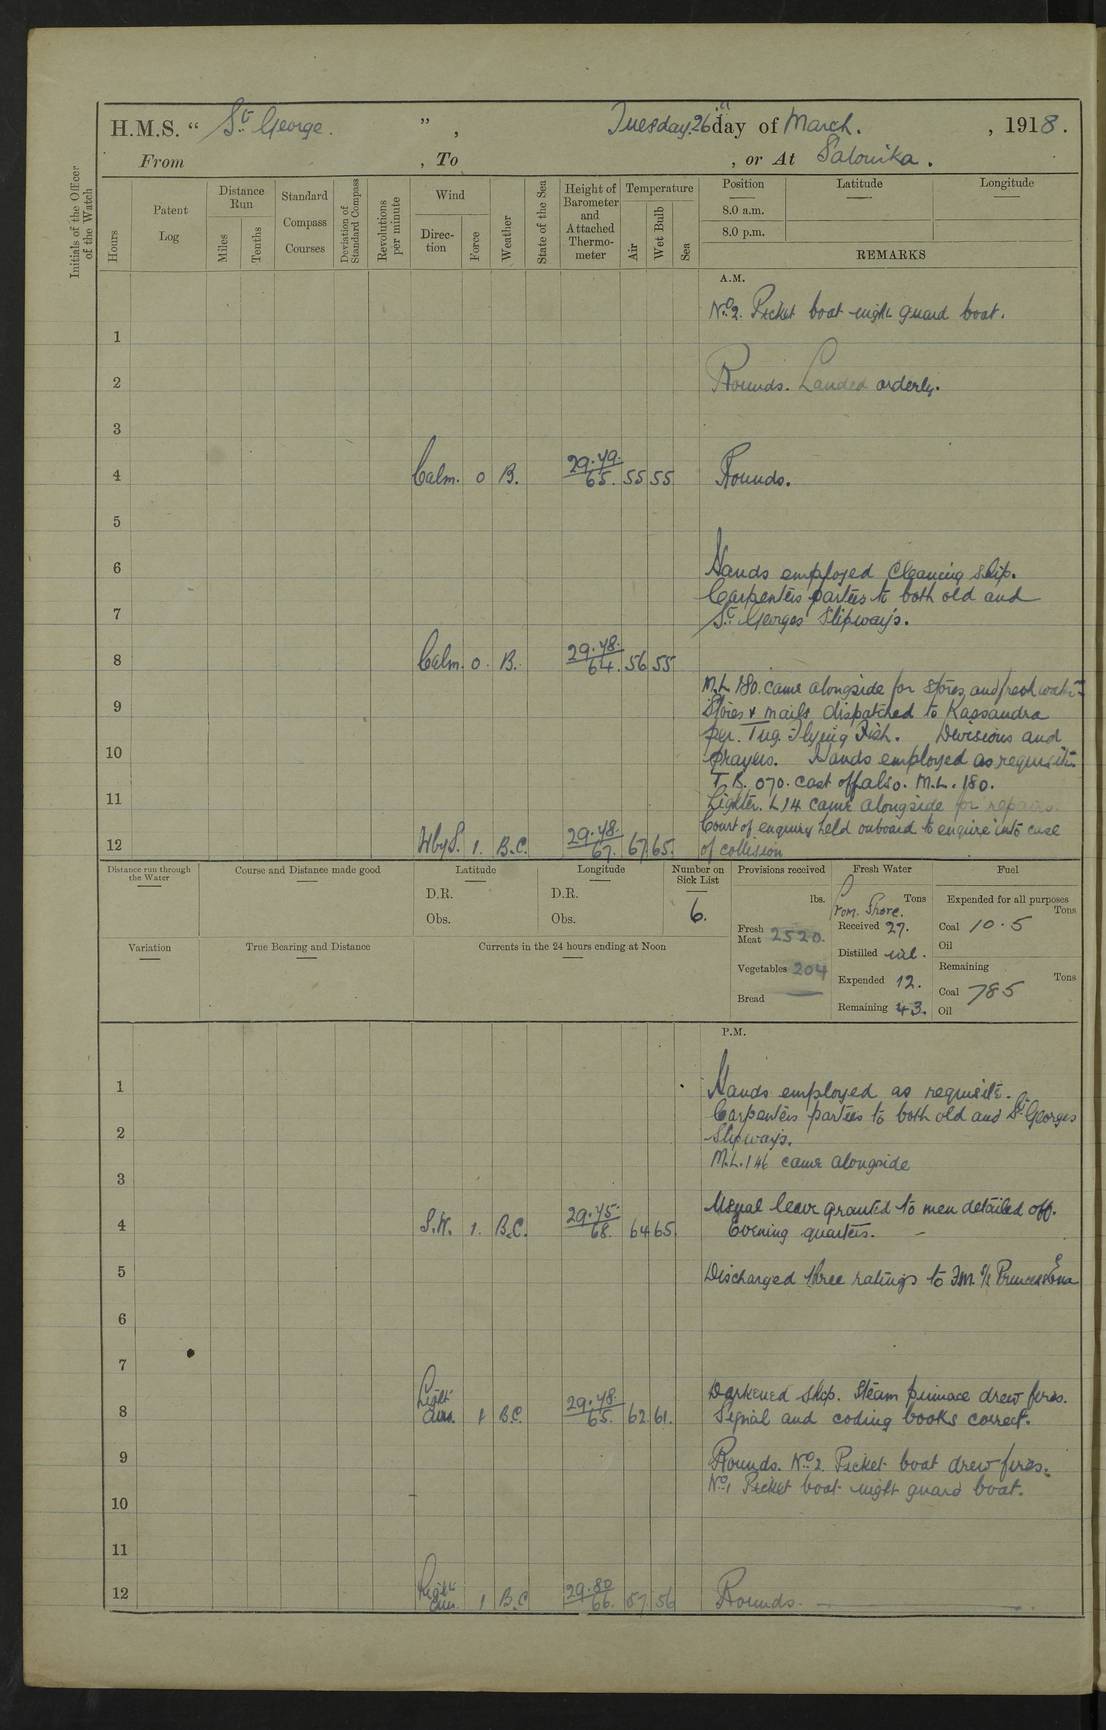 H.M.S. " St. George. ", Tuesday. 26th day of March. , 1918.
From , To , or At Salonika.
Initials of the Officer of the Watch
Hours
Patent Log
Distance Run
Miles
Tenths
Standard Compass Courses
Deviation of Standard Compass
Revolutions per minute
Wind
Direction
Force
Weather
State of the Sea
Height of Barometer and Attached Thermometer
Temperature
Air
Wet Bulb
Sea
Position Latitude Longitude
8.0 a.m.
8.0 p.m.
REMARKS
A.M.
No. 2. Picket boat night guard boat.
1
2 Rounds. Landed orderly.
3
4 Calm. 0 B. 29.79. 65. 55 55 Rounds.
5
6 Hands employed Cleaning Ship.
Carpenters parties to both old and
7 St. Georges Slipways.
8 Calm. 0. B. 29.78. 64. 56 55
M.L. 180. came alongside for stores and fresh water
9 Stores & mails dispatched to Kassandra
per. Tug. Flying Fish. Divisions and
10 prayers. Hands employed as requisite
T.B. 070. cast off also. M.L. 180.
11 Lighter. L14 came alongside for repairs.
Court of enquiry held onboard to enquire into case
12 WbyS. 1. B.C. 29.78. 67. 67. 65. of collision
Distance run through the Water
Course and Distance made good
Latitude
D.R.
Obs.
Longitude
D.R.
Obs.
Number on Sick List
6.
Provisions received
lbs.
Fresh Meat 2520.
Vegetables 204
Bread —
Fresh Water
From Shore. Tons
Received 27.
Distilled nil.
Expended 12.
Remaining 43.
Fuel
Expended for all purposes
Tons
Coal 10.5
Oil
Remaining
Tons
Coal 785
Oil
Variation
True Bearing and Distance
Currents in the 24 hours ending at Noon
P.M.
1 Hands employed as requisite.
Carpenters parties to both old and St. Georges
2 Slipways.
M.L. 146 came alongside
3
Usual leave granted to men detailed off.
4 S.W. 1. B.C. 29.75. 68. 64 65. Evening quarters. —
5 Discharged three ratings to F.M. S/S Princess Ena
6
7
Darkened ship. Steam pinnace drew fires.
8 Light airs. 1 B.C. 29.78. 65. 62 61. Signal and coding books correct.
9 Rounds. No. 2. Picket boat drew fires.
No. 1 Picket boat night guard boat.
10
11
12 Light airs. 1 B.C 29.80 66. 57. 56 Rounds.